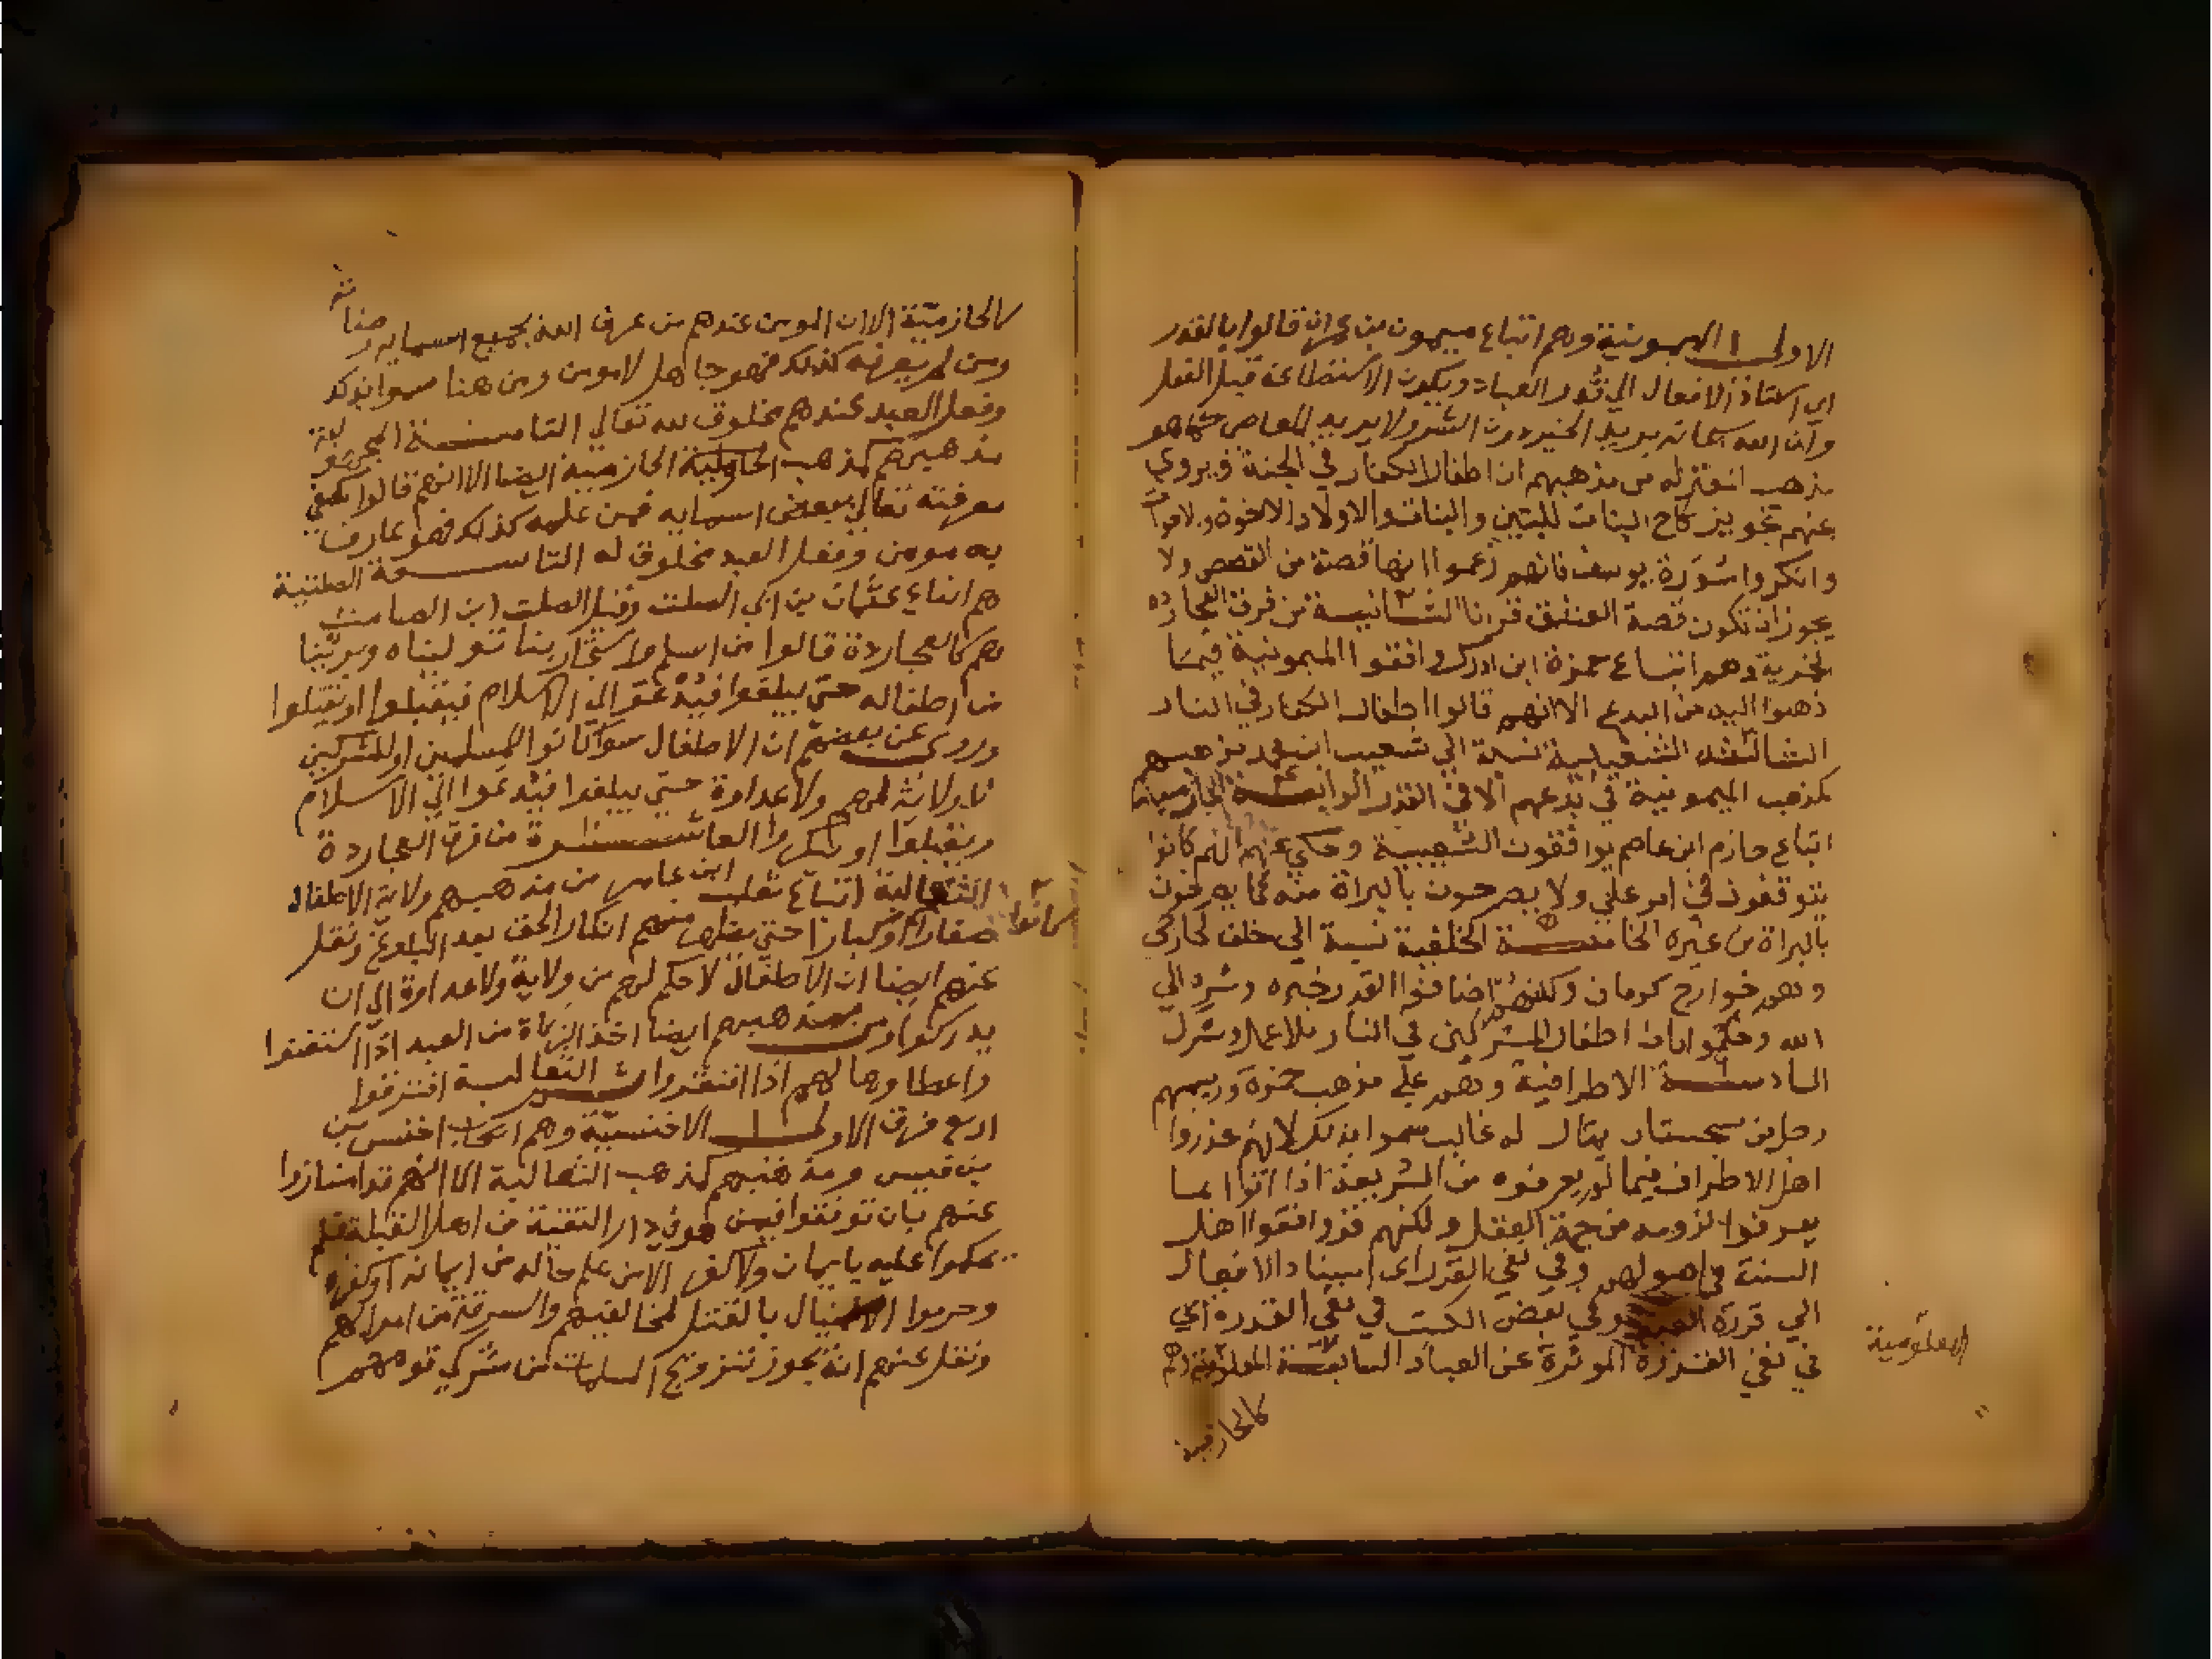 الاولى الميمونية وهم اتباع ميمون بن عمران قالوا بالقدر
اي استاذ الافعال الي قدر العباد ويكون الاستطاعة قبل الفعل
وان الله سبحانه يريد الخير دون الشر ولا يريد المعاصي كما هو
مذهب المعتزله من مذهبهم ان اطفال الكفار في الجنة ويروي
عنهم تجويز نكاح البنات للبنين والبنات والاولاد الاخوة
وانكروا سورة يوسف فانهم زعموا انها قصة من القصص ولا
يجوز ان تكون قصة العشق قرانا الثانية من فرق العجارده
الحمزية وهم اتباع حمزة ابن ادرك وافقوا الميمونية فيما
ذهبوا اليه من البدع الا انهم قالوا اطفال الكفار في النار
الثالثة الشعيبية نسبة الي شعيب ابن محمد مذهبهم
كمذهب الميمونية في بدعهم الا في القدر الرابعة الحازمية
اتباع حازم ابن عاصم يوافقون الشعيبية وحكي عنهم انهم كانوا
يتوقفون في امر علي ولا يصرحون بالبراة منه كما يصرحون
بالبراة من غيره الخامسة الخلفية نسبة الي خلف الخارجي
وهم خوارج كرمان ولكنهم اضافوا القدر خيره وشره الي
الله وحكموا بان اطفال المشركين في النار بلا عمل وشرك
السادسة الاطرافية وهم علي مذهب حمزة ورييسهم
رجل من سجستان يقال له غالب سموا بذلك لانهم عذروا
اهل الاطراف فيما لم يعرفوه من الشريعة اذا اتوا بما
يعرفوا لزومه من جهة العقل ولكنهم قد وافقوا اهل
السنة في اصولهم وفي نفي القدر اي اسناد الافعال
الي قدرة العبد وفي بعض الكتب في نفي القدرة اي
في نفي القدرة الموثرة عن العباد السابعة المعلومية وهم
المعلومية
كالحازمية
كالحازمية الا ان المومن عندهم من عرف الله بجميع اسمايه وصفاته
ومن لم يعرفه كذلك فهو جاهل لا مومن ومن هنا سموا بذلك
وفعل العبد عندهم مخلوق لله تعالي الثامنة المجهولية
مذهبهم كمذهب الحازمية ايضا الا انهم قالوا يكفي
معرفته تعالي ببعض اسمايه فمن علمه كذلك فهو عارف
به مومن وفعل العبد مخلوق له التاسعة الصلتية
هم اتباع عثمان بن ابي الصلت وقيل الصلت ابن الصامت
وهم كالعجاردة قالوا من اسلم واستجار بنا توليناه وبرينا
من اطفاله حتي يبلغوا فيدعوا الي الاسلام فيقبلوا او يقتلوا
وروي عن بعضهم ان الاطفال سوا كانوا للمسلمين او للمشركين
لا ولاية لهم ولا عداوة حتي يبلغوا فيدعوا الي الاسلام
ويقبلوا او ينكروا العاشرة من فرق العجاردة
الثعالبة اتباع ثعلب ابن عامر من مذهبهم ولاية الاطفال
كانوا صغارا او كبارا حتي يظهر منهم انكار الحق بعد البلوغ ونقل
عنهم ايضا ان الاطفال لا حكم لهم من ولاية ولا عداوة الي ان
يدركوا ومن مذهبهم ايضا اخذ الزكاة من العبد اذا استغنوا
واعطاوها لهم اذا افتقروا ثم الثعالبة افترقوا
اربع فرق الاولى الاخنسية وهم اصحاب اخنس بن
بن قيس ومذهبهم كمذهب الثعالبة الا انهم قد امتازوا
عنهم بان توقفوا فيمن هو في دار التقية من اهل القبلة فلم
يحكموا عليه بايمان ولا كفر الا من علم حاله من ايمانه او كفره
وحرموا الاغتيال بالقتل لمخالفيهم والسرقة من اموالهم
ونقل عنهم انه يجوز تزويج المسلمات من مشركي قومهم